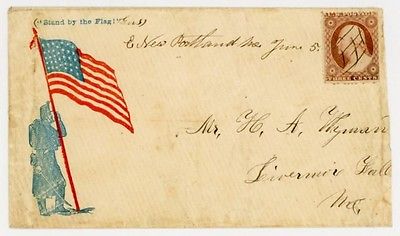 "Stand by the Flag!"
E New Portland Me June 5
THREE CENTS
Mr. H. A. Wyman
Livermir Fall
Me.